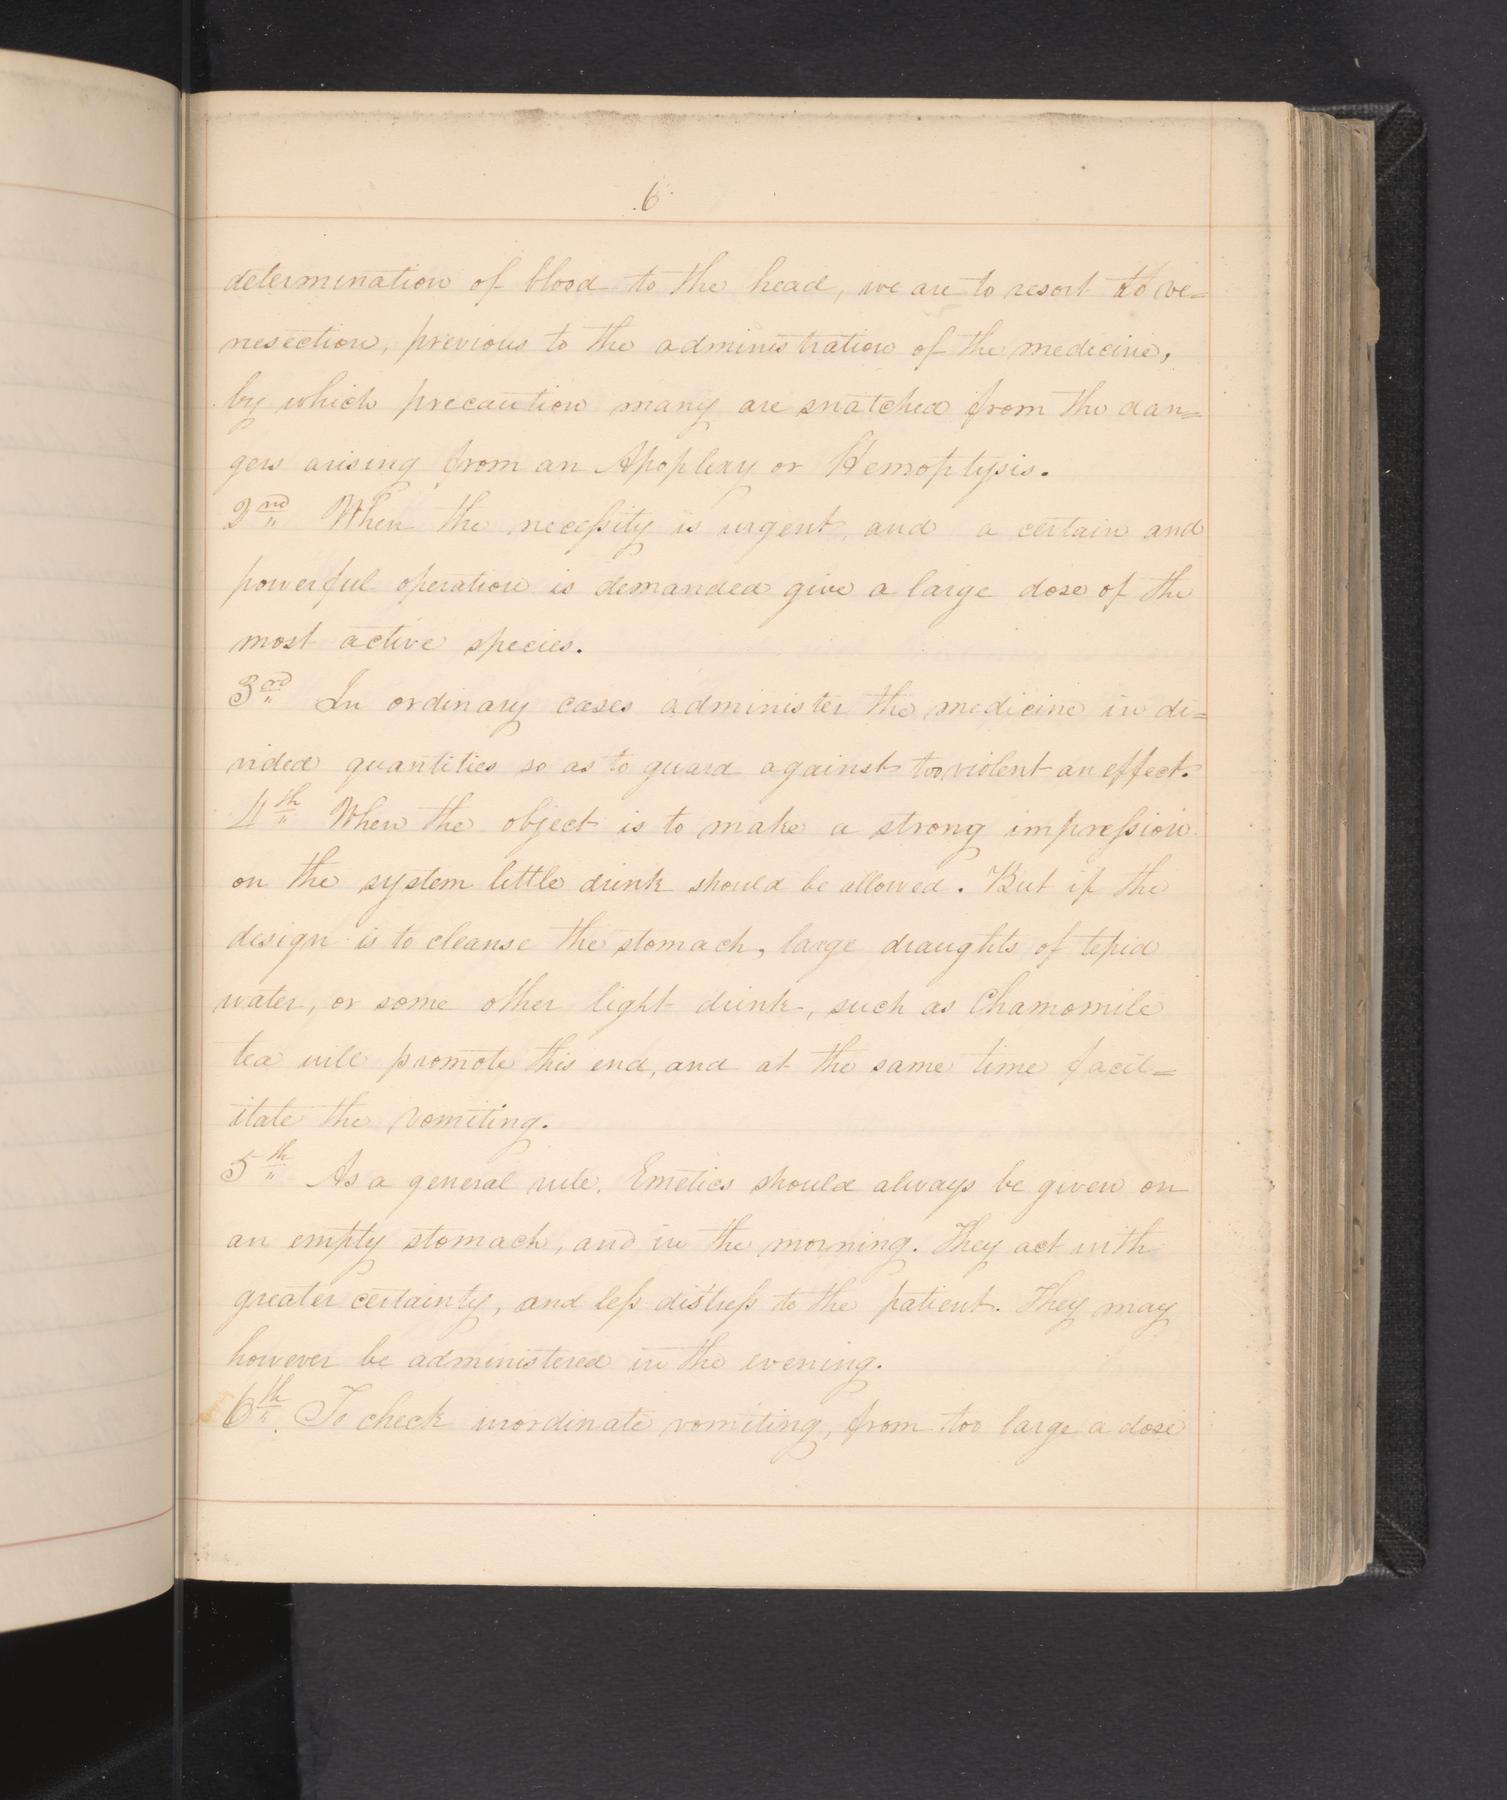 6
determination of blood to the head, we are to resort to ve=
nesection, previous to the administration of the medicine,
by which precaution many are snatched from the dan=
gers arising from an Apoplexy or Hemoptysis.
2nd When the necessity is urgent, and a certain and
powerful operation is demanded give a large dose of the
most active species.
3rd In ordinary cases administer the medicine in di=
vided quantities so as to guard against too violent an effect.
4th When the object is to make a strong impression
on the system little drink should be allowed. But if the
design is to cleanse the stomach, large draughts of tepid
water, or some other light drink, such as Chamomile
tea will promote this end, and at the same time facil=
itate the vomiting.
5th As a general rule, Emetics should always be given on
an empty stomach, and in the morning. They act with
greater certainty, and less distress to the patient. They may
however be administered in the evening.
6th. To check inordinate vomiting, from too large a dose